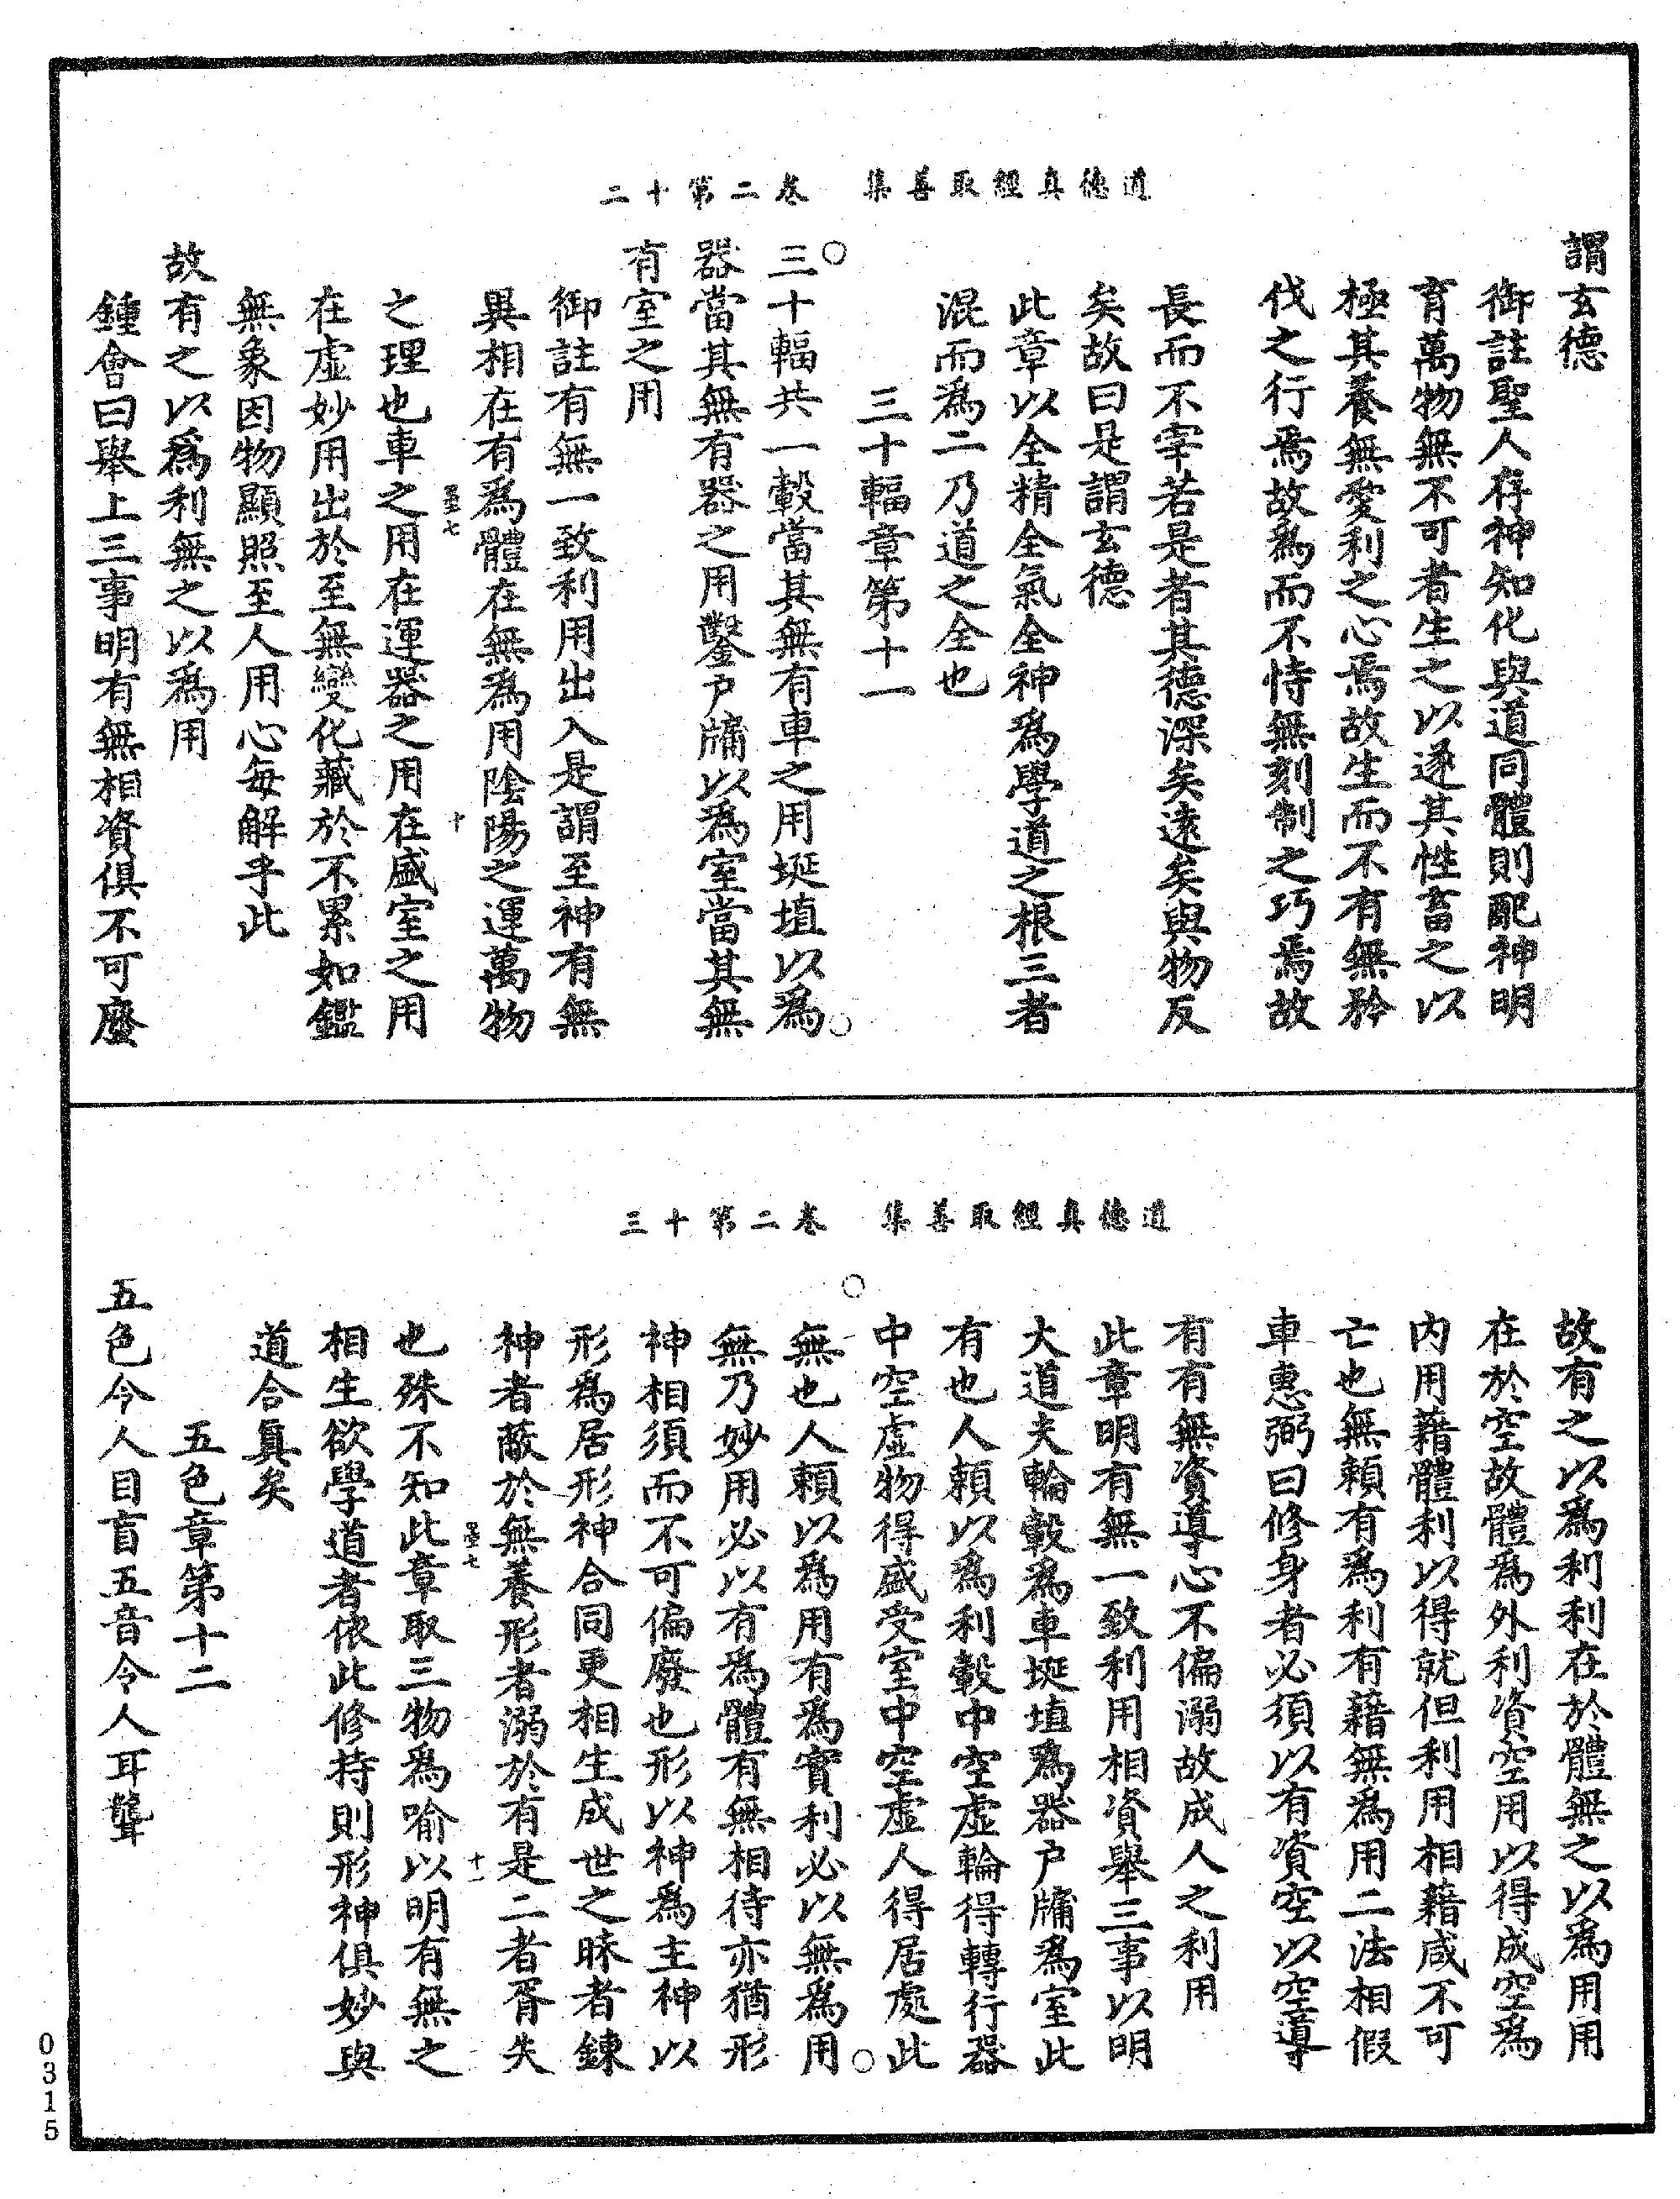 道德真經取善集　卷二第十二
謂玄德
御註聖人存神知化與道同體則配神明
育萬物無不可者生之以遂其性畜之以
極其養無愛利之心焉故生而不有無矜
伐之行焉故為而不恃無刻制之巧焉故
長而不宰若是者其德深矣遠矣與物反
矣故曰是謂玄德
此章以全精全氣全神為學道之根三者
混而為二乃道之全也
三十輻章第十一
三十輻共一轂當其無有車之用埏埴以為
器當其無有器之用鑿户牖以為室當其無
有室之用
御註有無一致利用出入是謂至神有無
異相在有為體在無為用陰陽之運萬物
之理也車之用在運器之用在盛室之用
在虛妙用出於至無變化藏於不累如鑑
無象因物顯照至人用心每解乎此
故有之以為利無之以為用
鍾會曰舉上三事明有無相資俱不可廢
道德真經取善集　卷二第十三
故有之以為利利在於體無之以為用用
在於空故體為外利資空用以得成空為
内用藉體利以得就但利用相藉咸不可
亡也無賴有為利有藉無為用二法相假
車惠弼曰修身者必須以有資空以空導
有有無資導心不偏溺故成人之利用
此章明有無一致利用相資舉三事以明
大道夫輪轂為車埏埴為器户牖為室此
有也人賴以為利轂中空虛輪得轉行器
中空虛物得盛受室中空虛人得居處此
無也人賴以為用有為實利必以無為用
無乃妙用必以有為體有無相待亦猶形
神相須而不可偏廢也形以神為主神以
形為居形神合同更相生成世之昧者鍊
神者蔽於無養形者溺於有是二者胥失
也殊不知此章取三物為喻以明有無之
相生欲學道者依此修持則形神俱妙與
道合真矣
五色章第十二
五色令人目盲五音令人耳聾
0315